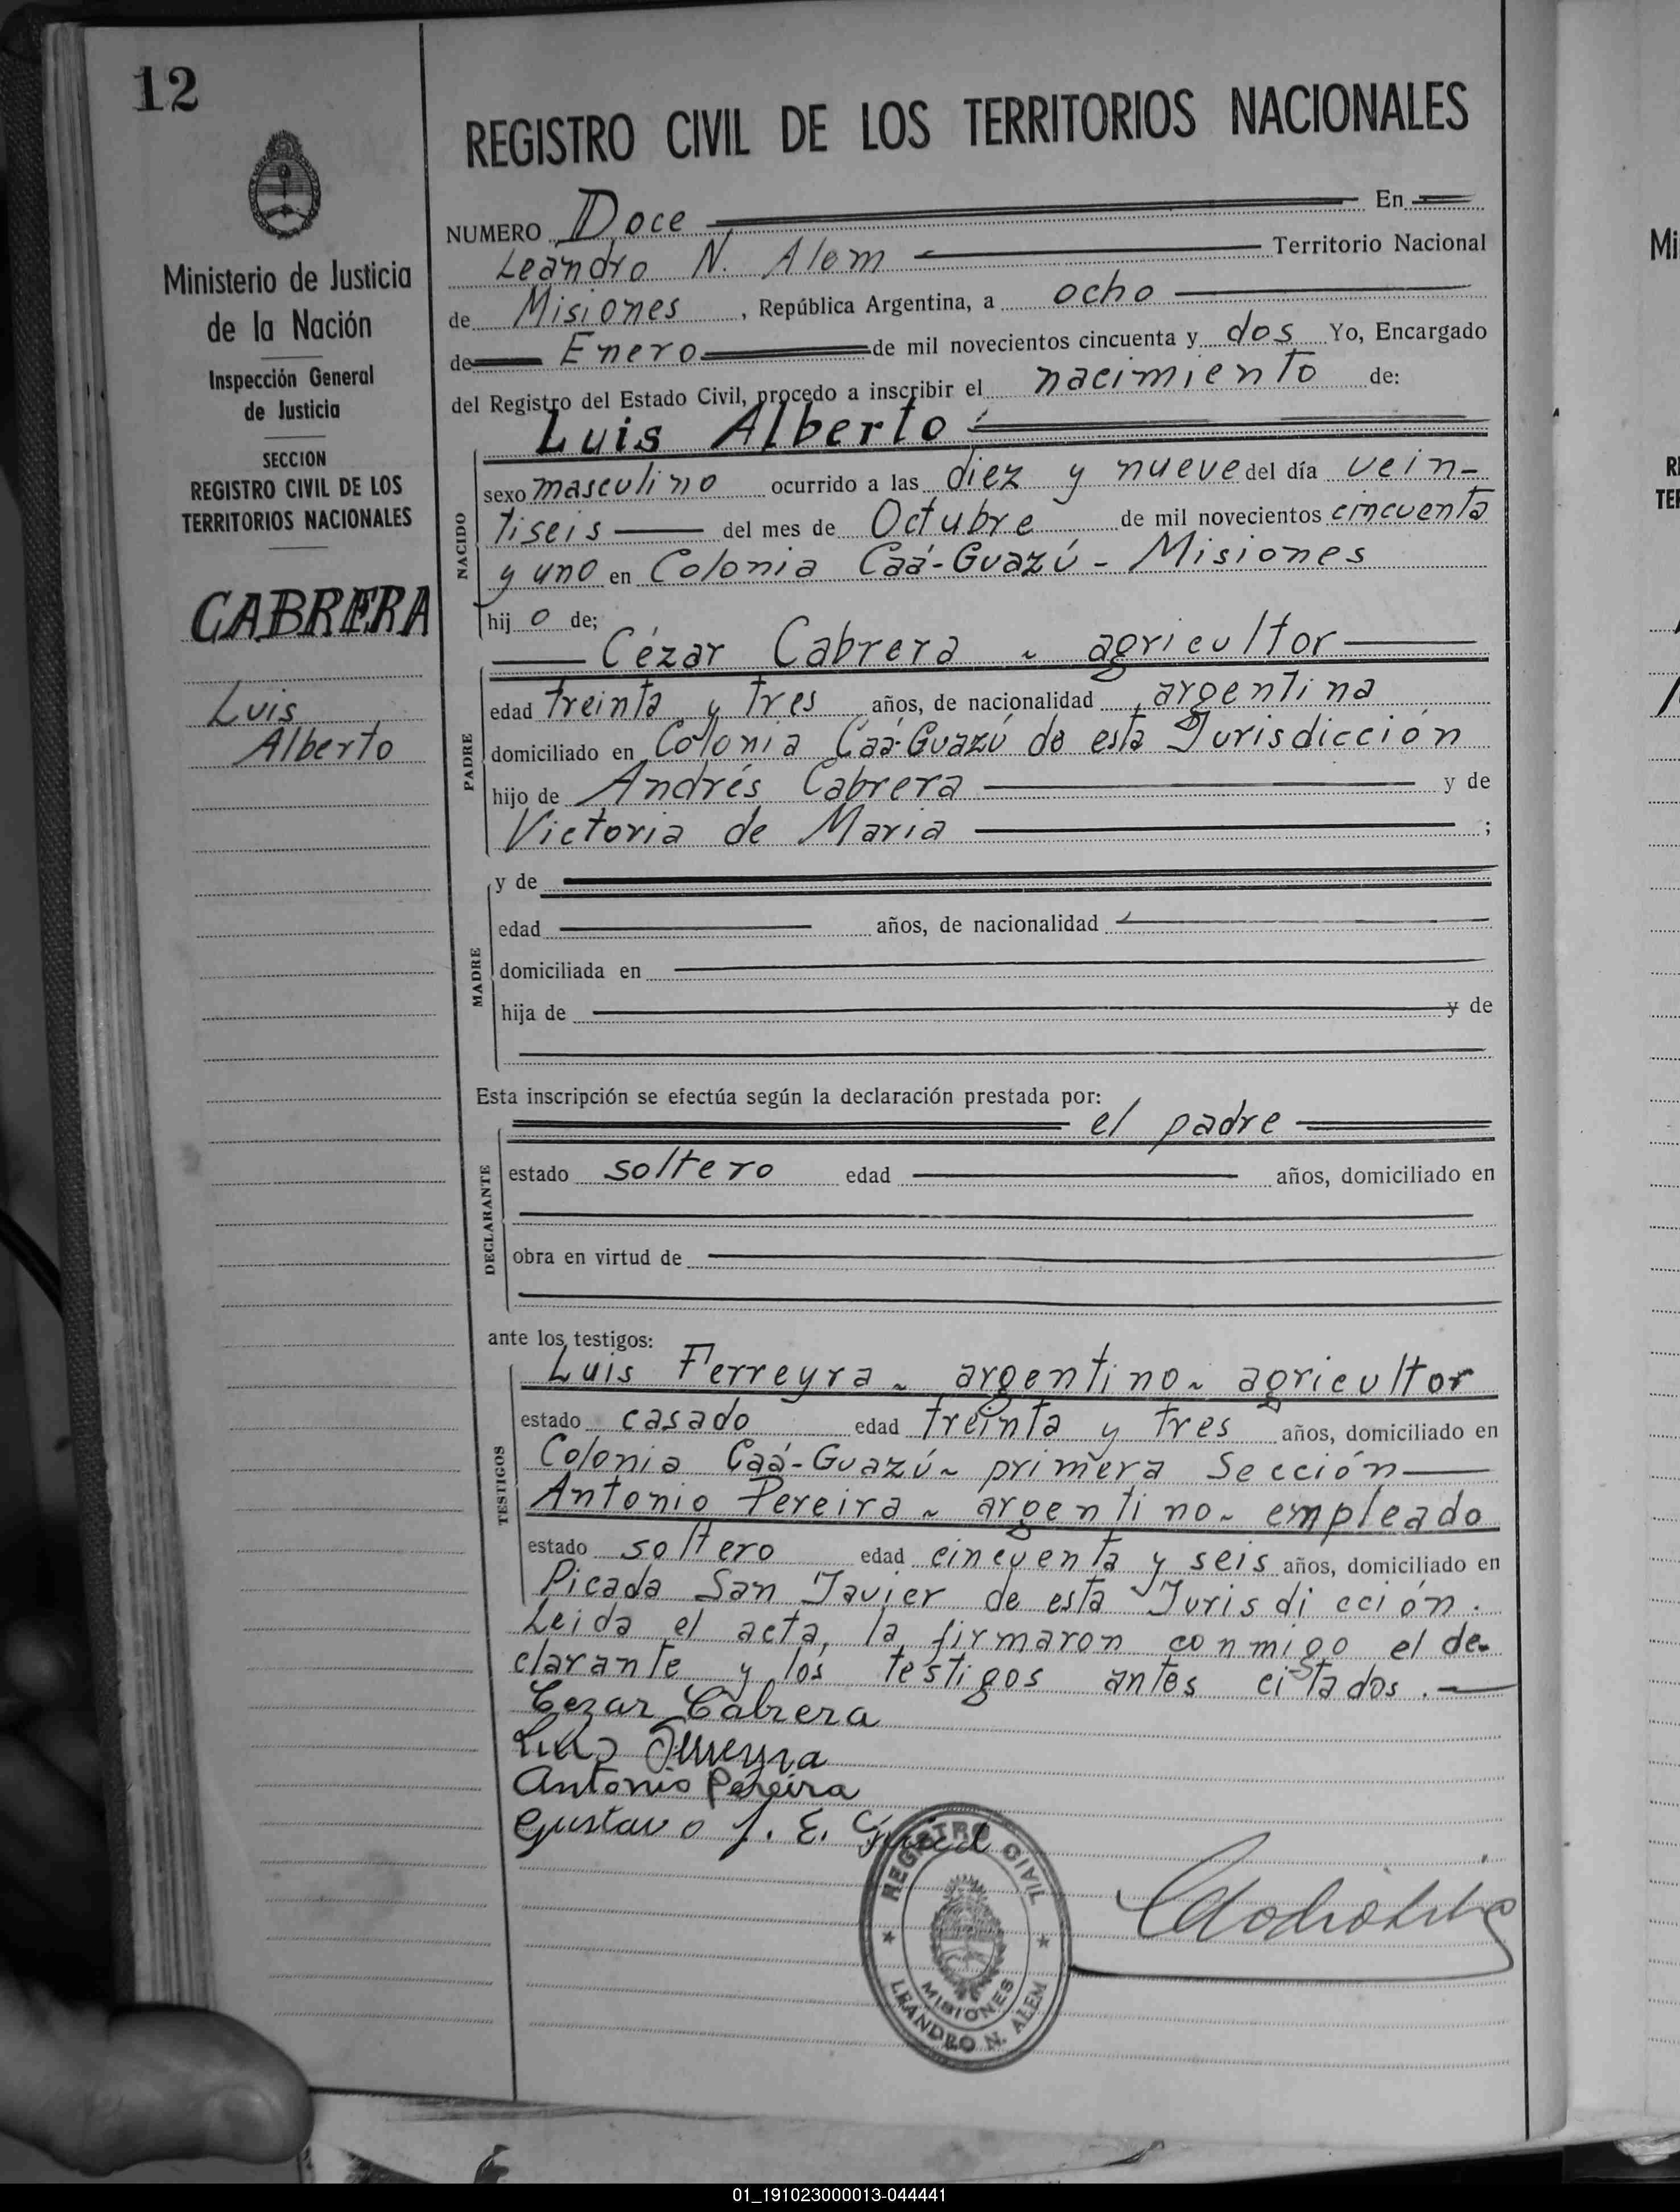 12
Ministerio de Justicia
de la Nación
Inspección General
de Justicia
SECCION
REGISTRO CIVIL DE LOS
TERRITORIOS NACIONALES
CABRERA
Luis
Alberto
REGISTRO CIVIL DE LOS TERRITORIOS NACIONALES
NUMERO Doce En
Leandro N. Alem Territorio Nacional
de Misiones, República Argentina, a ocho
de Enero de mil novecientos cincuenta y dos Yo, Encargado
del Registro del Estado Civil, procedo a inscribir el nacimiento de:
Luis Alberto
NACIDO
sexo masculino ocurrido a las diez y nueve del día vein-
tiseis del mes de Octubre de mil novecientos cincuenta
y uno en Colonia Caá-Guazú - Misiones
hijo de;
PADRE
Cézar Cabrera ~ agricultor
edad treinta y tres años, de nacionalidad argentina
domiciliado en Colonia Caá-Guazú de esta Jurisdicción
hijo de Andrés Cabrera y de
Victoria de Maria ;
MADRE
y de
edad años, de nacionalidad
domiciliada en
hija de y de
Esta inscripción se efectúa según la declaración prestada por:
DECLARANTE
el padre
estado soltero edad años, domiciliado en
obra en virtud de
ante los testigos:
TESTIGOS
Luis Ferreyra ~ argentino ~ agricultor
estado casado edad treinta y tres años, domiciliado en
Colonia Caá-Guazú ~ primera Sección
Antonio Pereira ~ argentino ~ empleado
estado soltero edad cincuenta y seis años, domiciliado en
Picada San Javier de esta Jurisdicción.
Leida el acta, la firmaron conmigo el de-
clarante y los testigos antes citados.
Cezar Cabrera
Luis Ferreyra
Antonio Pereira
Gustavo J. E.
REGISTRO CIVIL
MISIONES
LEANDRO N. ALEM
Mi
RE
TER
01_191023000013-044441